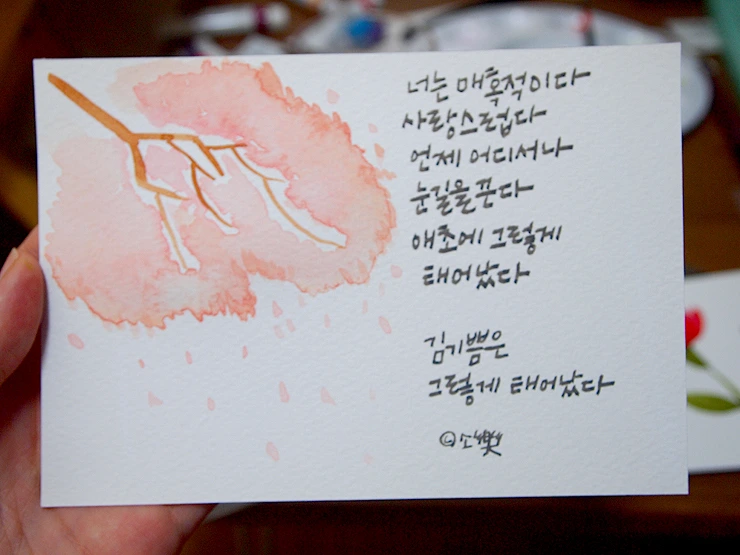 너는 매혹적이다
사랑스럽다
언제 어디서나
눈길을 끈다
애초에 그렇게
태어났다
김기쁨은
그렇게 태어났다
소樂